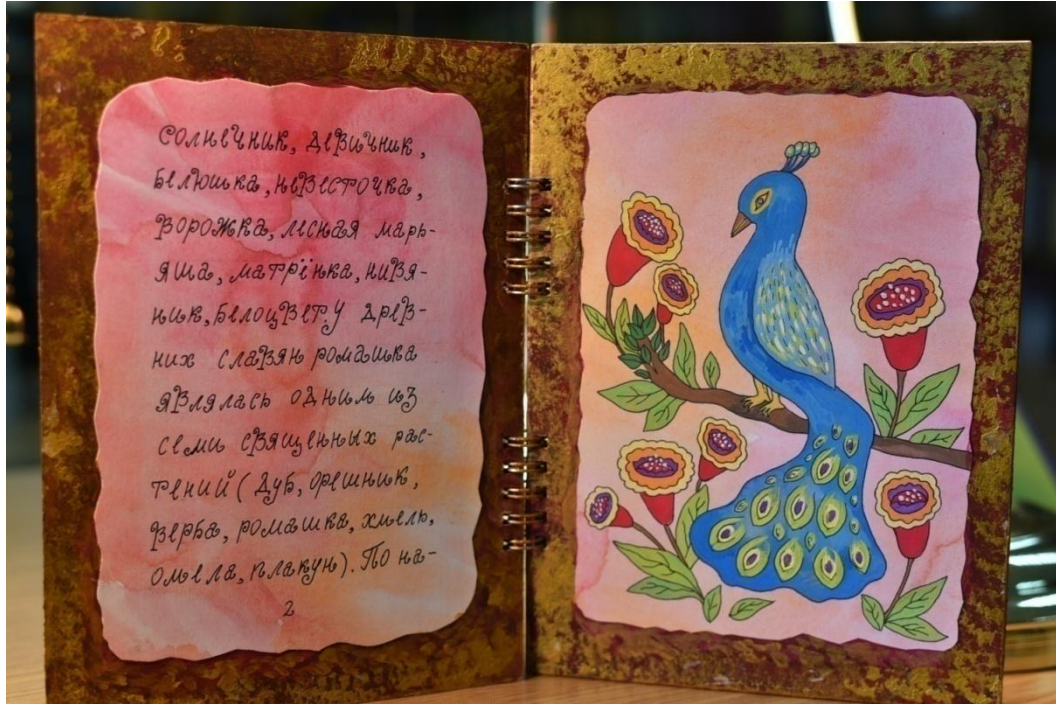 Солнечник, девичник,
белюшка, невесточка,
ворожка, лесная марь-
яша, матрёнка, нивя-
ник, белоцвет. У древ-
них славян ромашка
являлась одним из
семи священных рас-
тений (дуб, орешник,
верба, ромашка, хмель,
омела, плакун). По на-
2